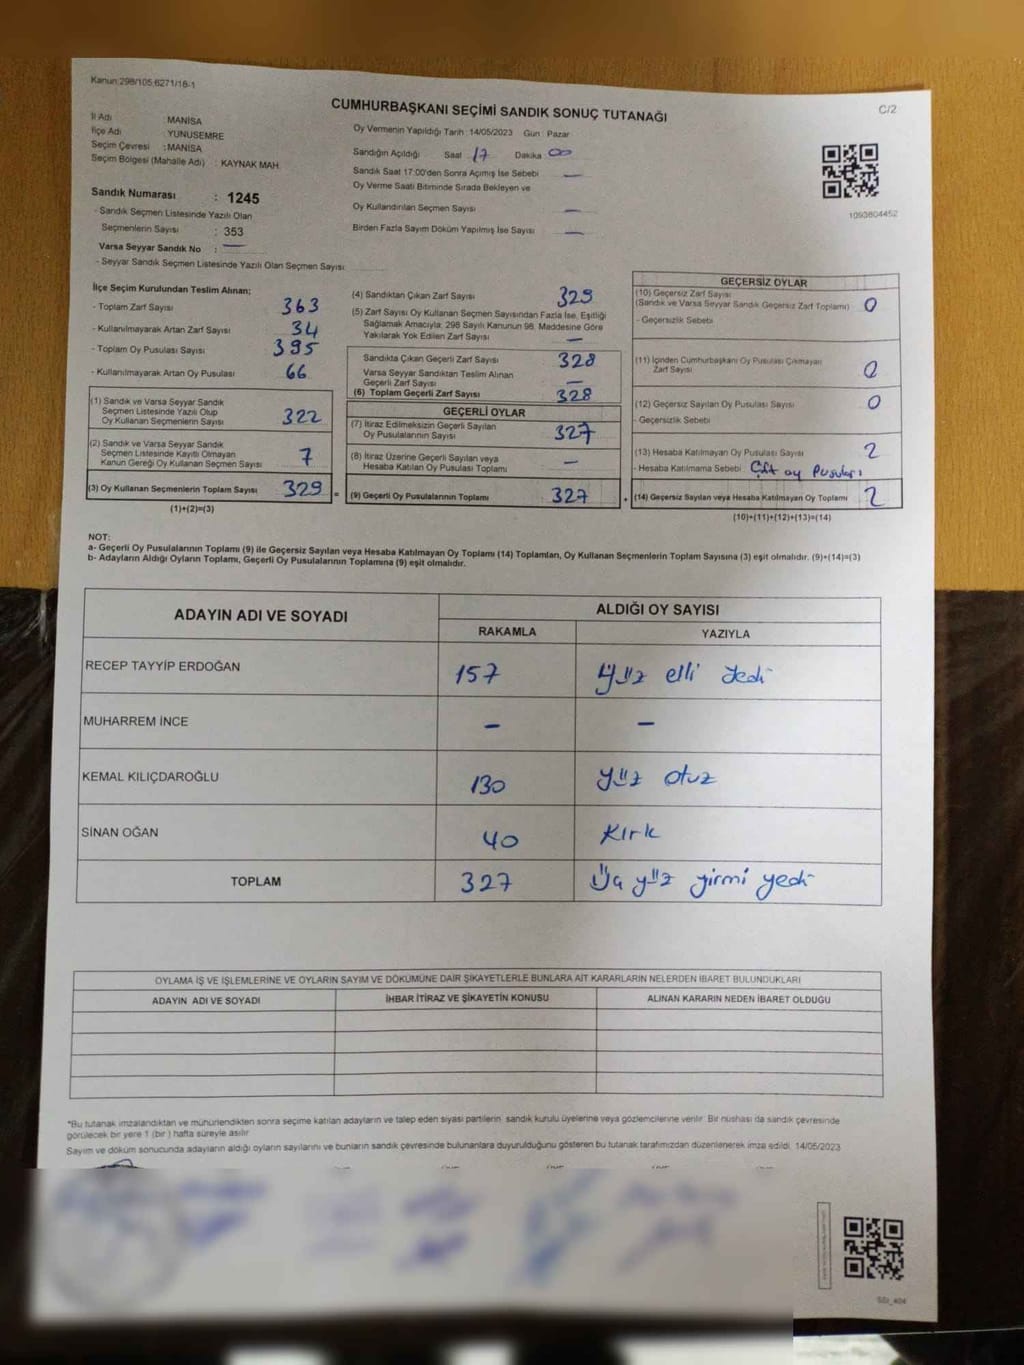 Kanun:298/105,6271/18-1
CUMHURBAŞKANI SEÇİMİ SANDIK SONUÇ TUTANAĞI
C/2
İl Adı : MANİSA
İlçe Adı : YUNUSEMRE
Seçim Çevresi : MANİSA
Seçim Bölgesi (Mahalle Adı) : KAYNAK MAH.
Sandık Numarası : 1245
- Sandık Seçmen Listesinde Yazılı Olan
Seçmenlerin Sayısı : 353
Varsa Seyyar Sandık No : —
- Seyyar Sandık Seçmen Listesinde Yazılı Olan Seçmen Sayısı:
Oy Vermenin Yapıldığı Tarih :14/05/2023 Gün : Pazar
Sandığın Açıldığı Saat 17 Dakika 00
Sandık Saat 17:00'den Sonra Açılmış İse Sebebi —
Oy Verme Saati Bitiminde Sırada Bekleyen ve
Oy Kullandırılan Seçmen Sayısı —
Birden Fazla Sayım Döküm Yapılmış İse Sayısı —
1093804452
İlçe Seçim Kurulundan Teslim Alınan;
- Toplam Zarf Sayısı 363
- Kullanılmayarak Artan Zarf Sayısı 34
- Toplam Oy Pusulası Sayısı 395
- Kullanılmayarak Artan Oy Pusulası 66
(1) Sandık ve Varsa Seyyar Sandık
Seçmen Listesinde Yazılı Olup
Oy Kullanan Seçmenlerin Sayısı 322
(2) Sandık ve Varsa Seyyar Sandık
Seçmen Listesinde Kayıtlı Olmayan
Kanun Gereği Oy Kullanan Seçmen Sayısı 7
(3) Oy Kullanan Seçmenlerin Toplam Sayısı 329
(1)+(2)=(3)
=
(4) Sandıktan Çıkan Zarf Sayısı 329
(5) Zarf Sayısı Oy Kullanan Seçmen Sayısından Fazla İse, Eşitliği
Sağlamak Amacıyla; 298 Sayılı Kanunun 98. Maddesine Göre
Yakılarak Yok Edilen Zarf Sayısı —
Sandıkta Çıkan Geçerli Zarf Sayısı 328
Varsa Seyyar Sandıktan Teslim Alınan
Geçerli Zarf Sayısı —
(6) Toplam Geçerli Zarf Sayısı 328
GEÇERLİ OYLAR
(7) İtiraz Edilmeksizin Geçerli Sayılan
Oy Pusulalarının Sayısı 327
(8) İtiraz Üzerine Geçerli Sayılan veya
Hesaba Katılan Oy Pusulası Toplamı —
(9) Geçerli Oy Pusulalarının Toplamı 327
+
GEÇERSİZ OYLAR
(10) Geçersiz Zarf Sayısı
(Sandık ve Varsa Seyyar Sandık Geçersiz Zarf Toplamı) 0
- Geçersizlik Sebebi
(11) İçinden Cumhurbaşkanı Oy Pusulası Çıkmayan
Zarf Sayısı 0
(12) Geçersiz Sayılan Oy Pusulası Sayısı 0
- Geçersizlik Sebebi
(13) Hesaba Katılmayan Oy Pusulası Sayısı 2
- Hesaba Katılmama Sebebi Çift oy Pusuları
(14) Geçersiz Sayılan veya Hesaba Katılmayan Oy Toplamı 2
(10)+(11)+(12)+(13)=(14)
NOT:
a- Geçerli Oy Pusulalarının Toplamı (9) ile Geçersiz Sayılan veya Hesaba Katılmayan Oy Toplamı (14) Toplamları, Oy Kullanan Seçmenlerin Toplam Sayısına (3) eşit olmalıdır. (9)+(14)=(3)
b- Adayların Aldığı Oyların Toplamı, Geçerli Oy Pusulalarının Toplamına (9) eşit olmalıdır.
ADAYIN ADI VE SOYADI ALDIĞI OY SAYISI
RAKAMLA YAZIYLA
RECEP TAYYİP ERDOĞAN 157 Yüz elli Yedi
MUHARREM İNCE – –
KEMAL KILIÇDAROĞLU 130 yüz otuz
SİNAN OĞAN 40 Kırk
TOPLAM 327 Üç yüz yirmi yedi
OYLAMA İŞ VE İŞLEMLERİNE VE OYLARIN SAYIM VE DÖKÜMÜNE DAİR ŞİKAYETLERLE BUNLARA AİT KARARLARIN NELERDEN İBARET BULUNDUKLARI
ADAYIN ADI VE SOYADI İHBAR İTİRAZ VE ŞİKAYETİN KONUSU ALINAN KARARIN NEDEN İBARET OLDUĞU
*Bu tutanak imzalandıktan ve mühürlendikten sonra seçime katılan adayların ve talep eden siyasi partilerin sandık kurulu üyelerine veya gözlemcilerine verilir. Bir nüshası da sandık çevresinde
görülecek bir yere 1 (bir ) hafta süreyle asılır.
Sayım ve döküm sonucunda adayların aldığı oyların sayılarını ve bunların sandık çevresinde bulunanlara duyurulduğunu gösteren bu tutanak tarafımızdan düzenlenerek imza edildi. 14/05/2023